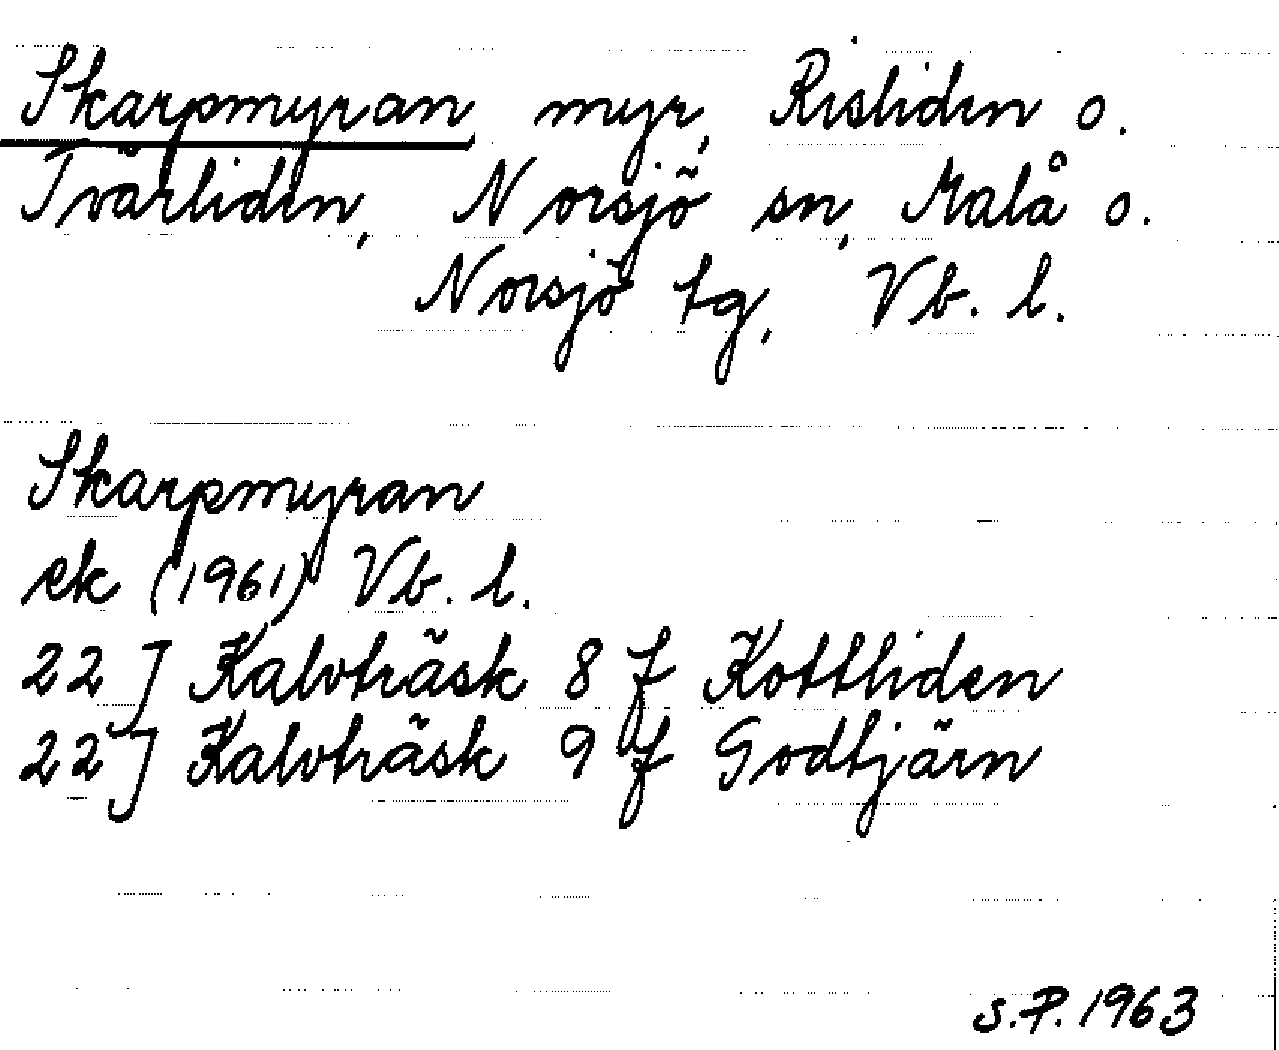 Skarpmyran, myr, Risliden o.
Tvärliden, Norsjö sn, Malå o.
Norsjö tg, Vb. l.
Skarpmyran
ek (1961) Vb. l.
22 J Kalvträsk 8 f Kottliden
22 J Kalvträsk 9 f Godtjärn
S.P. 1963